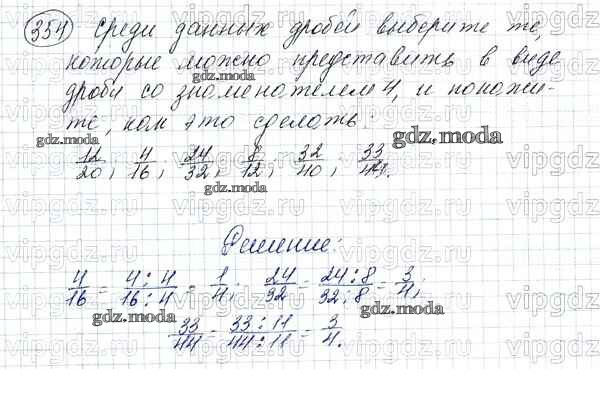 354 Среди данных дробей выберите те,
которые можно представить в виде
дроби со знаменателем 4, и покажи-
те, как это сделать:
12/20, 4/16, 24/32, 8/12, 32/40, 33/44.
Решение:
4/16 = 4:4/16:4 = 1/4; 24/32 = 24:8/32:8 = 3/4;
33/44 = 33:11/44:11 = 3/4.
gdz.moda
gdz.moda
gdz.moda
gdz.moda
gdz.moda
gdz.moda
vipgdz